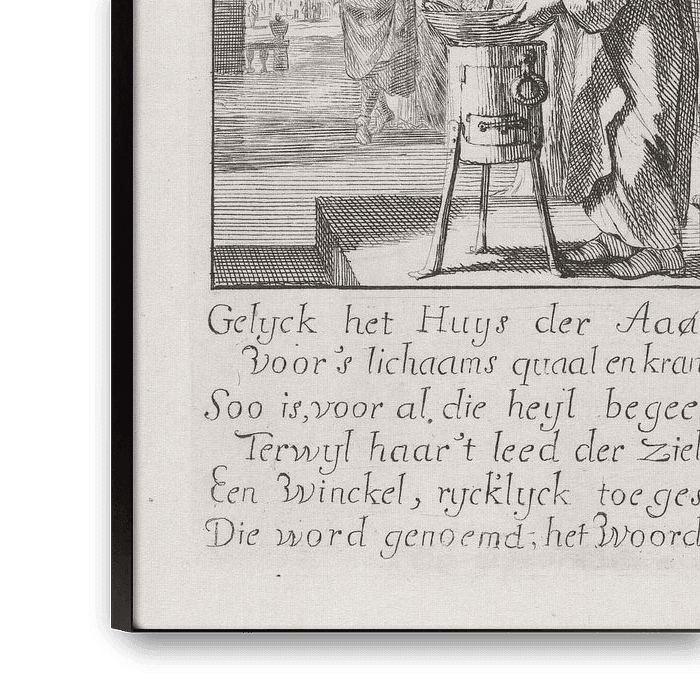 Gelyck het Huys der
Voor's lichaams quaal en kran
Soo is, voor al, die heyl begee
Terwyl haar 't leed der Ziel
Een Winckel, rycklyck toe ges
Die word genoemd; het Woord